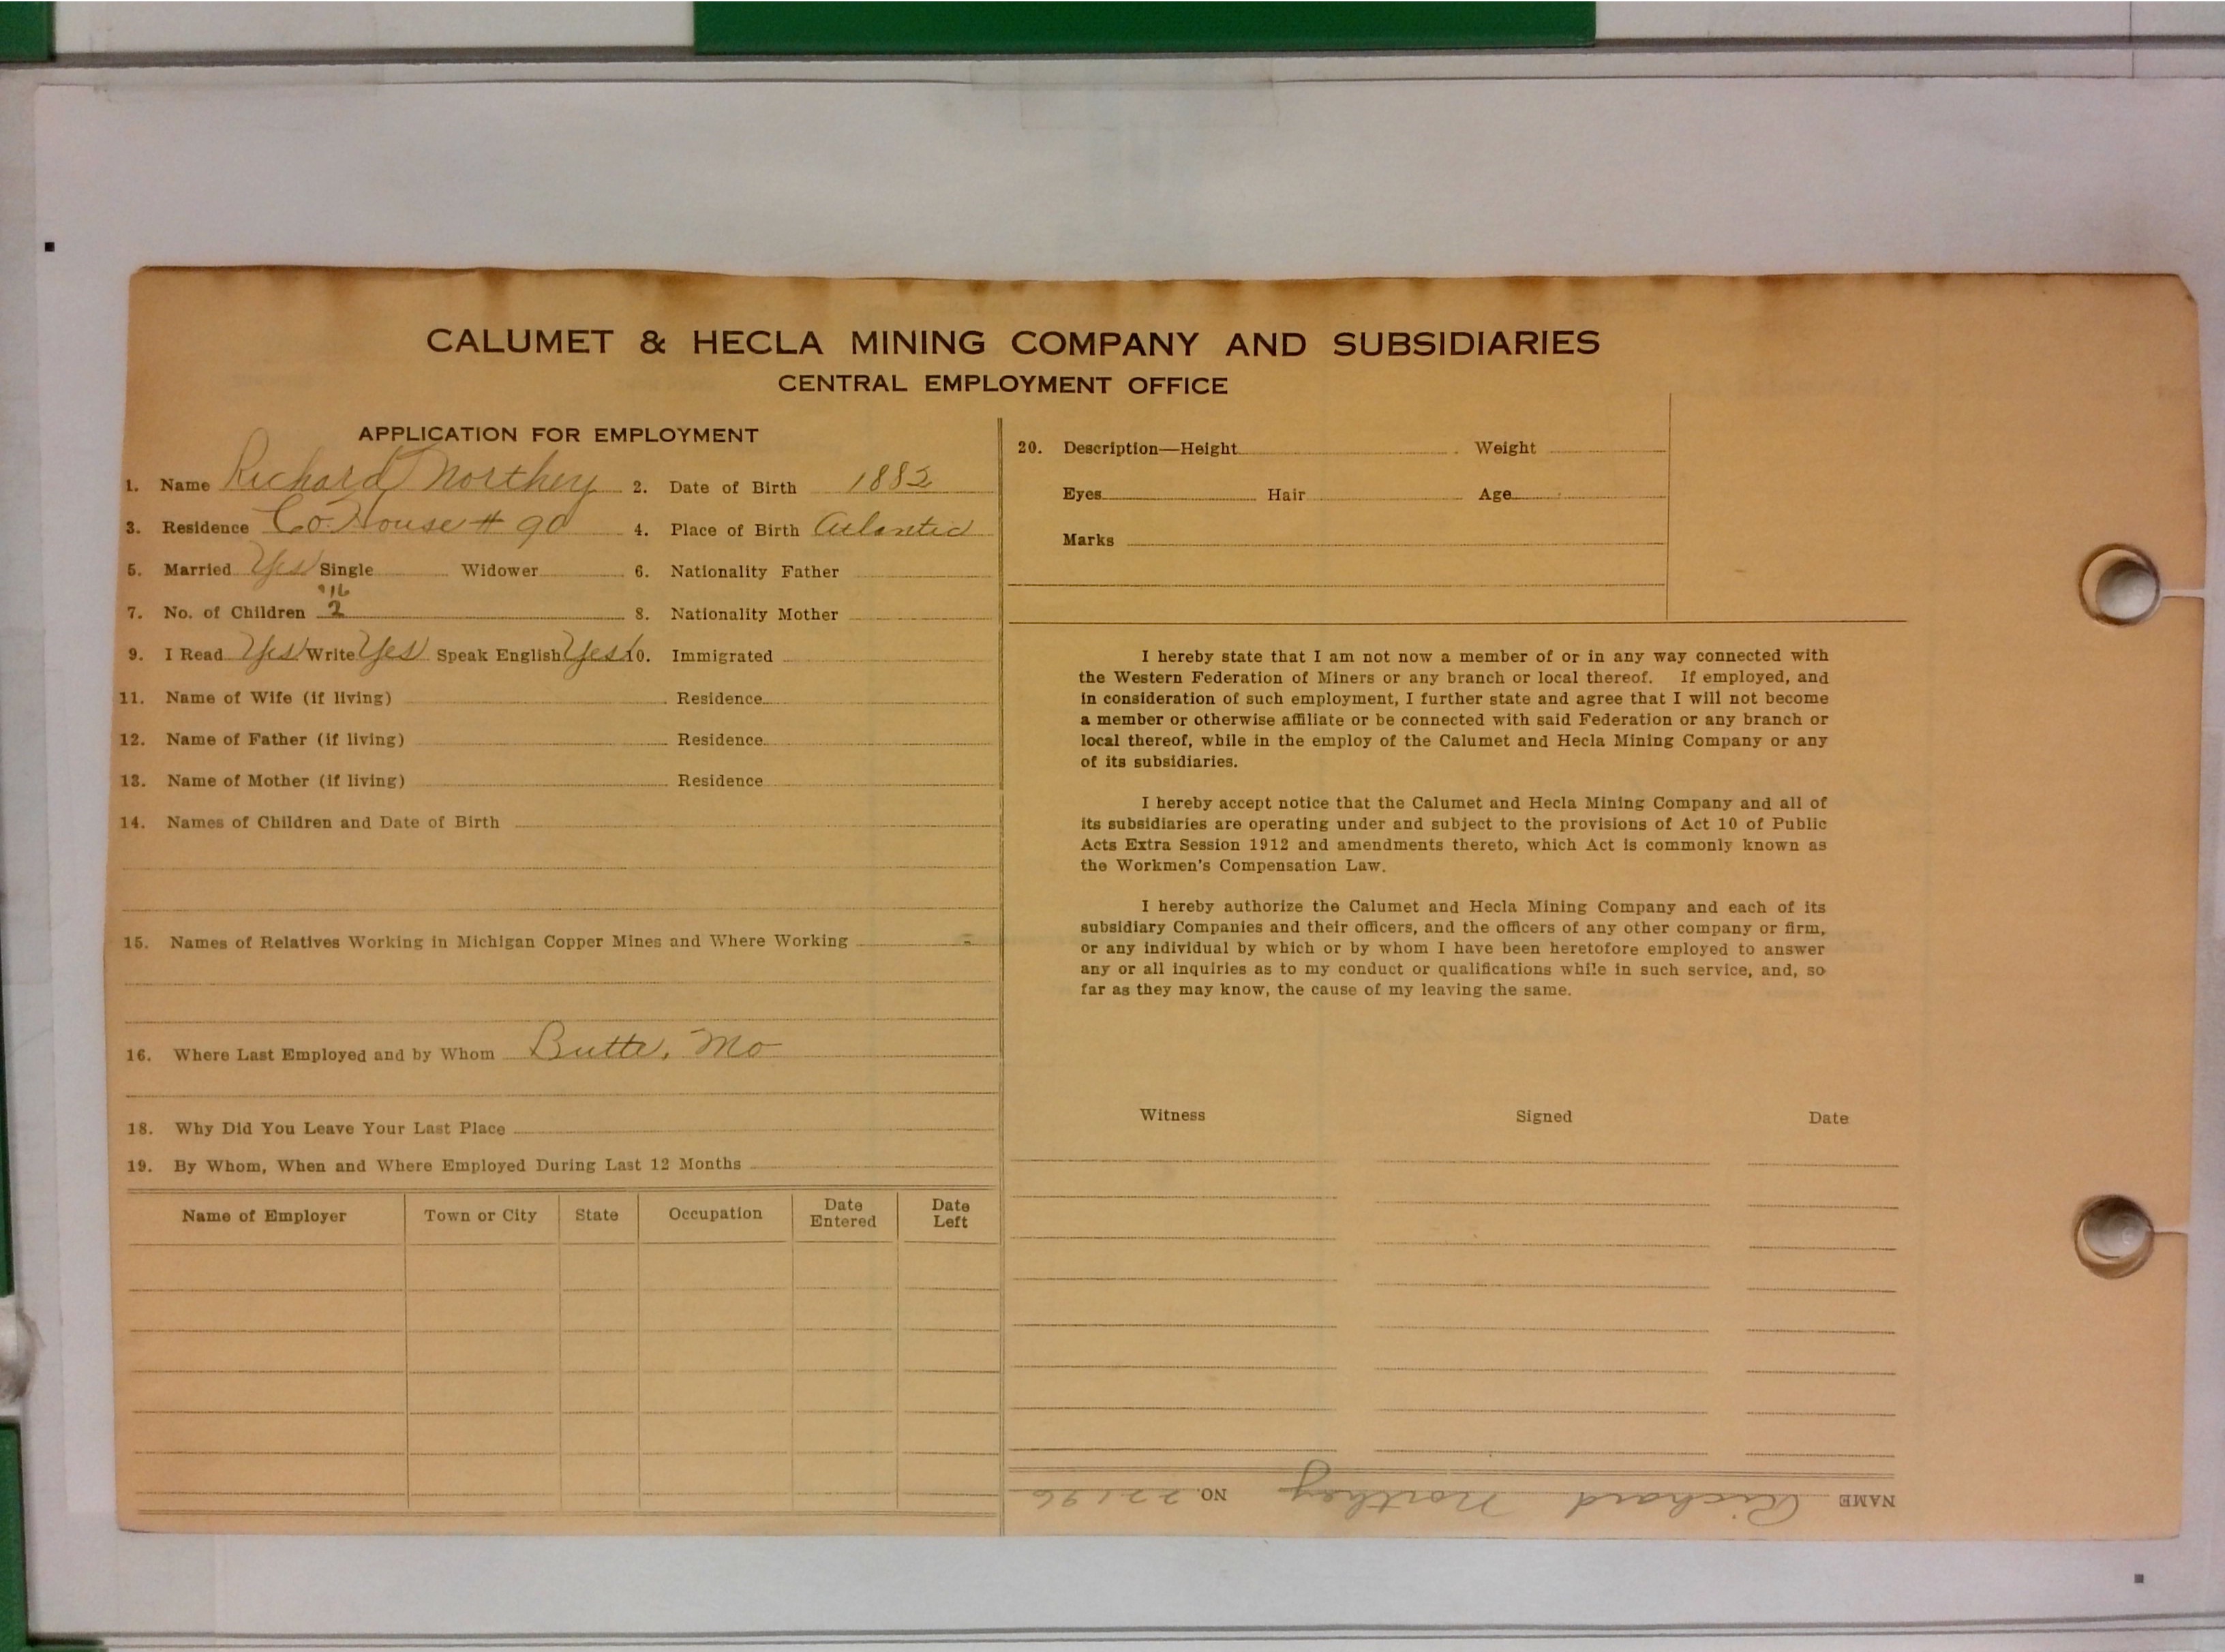 CALUMET & HECLA MINING COMPANY AND SUBSIDIARIES
CENTRAL EMPLOYMENT OFFICE
APPLICATION FOR EMPLOYMENT
1. Name Richard Northey 2. Date of Birth 1882
3. Residence Co House # 90 4. Place of Birth Atlantic
5. Married Yes Single Widower 6. Nationality Father
'16
7. No. of Children 2 8. Nationality Mother
9. I Read Yes Write Yes Speak English Yes 10. Immigrated
11. Name of Wife (if living) Residence
12. Name of Father (if living) Residence
13. Name of Mother (if living) Residence
14. Names of Children and Date of Birth
15. Names of Relatives Working in Michigan Copper Mines and Where Working
16. Where Last Employed and by Whom Butte, Mo
18. Why Did You Leave Your Last Place
19. By Whom, When and Where Employed During Last 12 Months
Name of Employer Town or City State Occupation Date Entered Date Left
20. Description—Height Weight
Eyes Hair Age
Marks
I hereby state that I am not now a member of or in any way connected with
the Western Federation of Miners or any branch or local thereof. If employed, and
in consideration of such employment, I further state and agree that I will not become
a member or otherwise affiliate or be connected with said Federation or any branch or
local thereof, while in the employ of the Calumet and Hecla Mining Company or any
of its subsidiaries.
I hereby accept notice that the Calumet and Hecla Mining Company and all of
its subsidiaries are operating under and subject to the provisions of Act 10 of Public
Acts Extra Session 1912 and amendments thereto, which Act is commonly known as
the Workmen's Compensation Law.
I hereby authorize the Calumet and Hecla Mining Company and each of its
subsidiary Companies and their officers, and the officers of any other company or firm,
or any individual by which or by whom I have been heretofore employed to answer
any or all inquiries as to my conduct or qualifications while in such service, and, so
far as they may know, the cause of my leaving the same.
Witness Signed Date
NAME Richard Northey NO. 22196